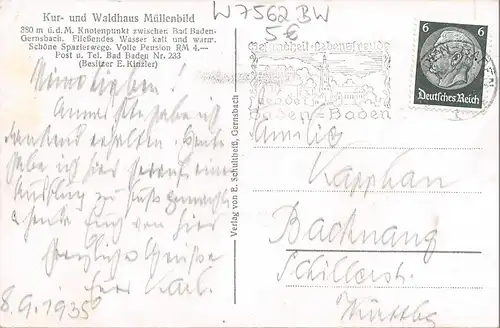 Kur- und Waldhaus Müllenbild
380 m ü.d.M. Knotenpunkt zwischen Bad Baden-
Gernsbach. Fließendes Wasser kalt und warm.
Schöne Spazierwege. Volle Pension RM 4.—
Post u. Tel. Bad Baden Nr. 233
(Besitzer E. Kinzler)
Meine Lieben!
habe ich
dankend erhalten. Heute
habe ich hier
Ausflug zu Fuß gemacht
von hier
herzliche Grüße
Euer Karl.
8.9.1935
Verlag von E. Schultheiß, Gernsbach
W7562 BW
5€
Gesundheit-Lebensfreude
Baden-Baden
6 6
Deutsches Reich
Familie
Kapphan
Backnang
Schillerstr.
Württbg